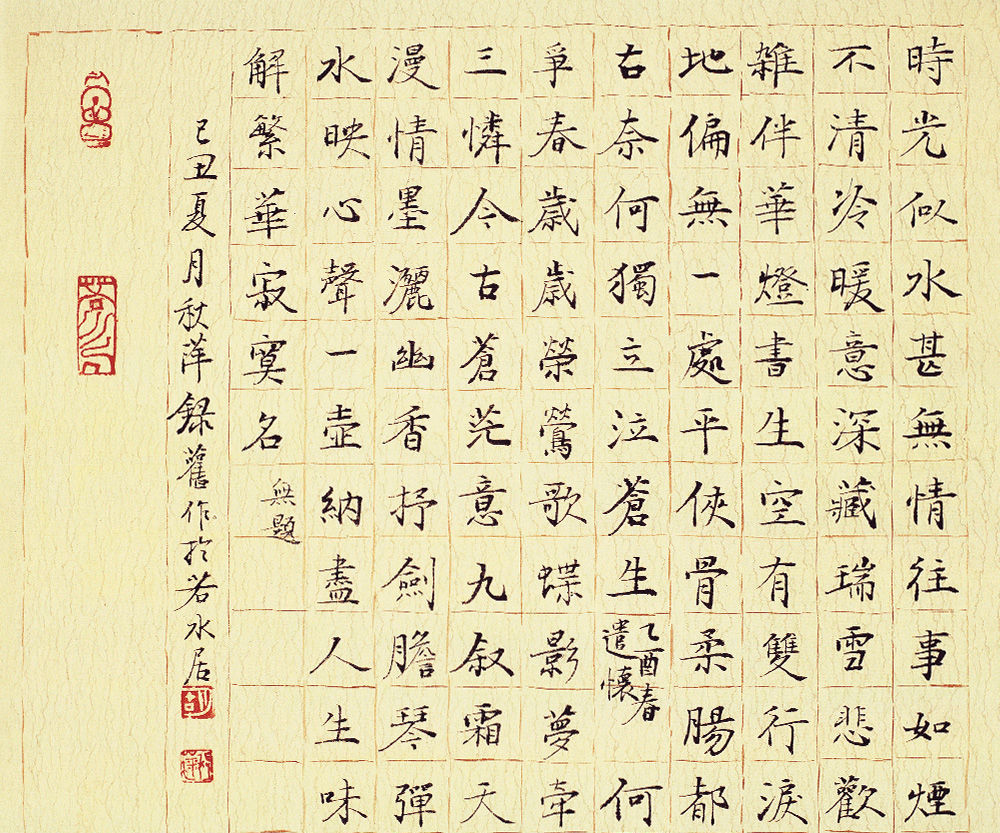 時光似水甚無情往事如煙
不清冷暖意深藏瑞雪悲歡
雜伴華燈書生空有雙行淚
地偏無一處平俠骨柔腸都
古奈何獨立泣蒼生乙酉春遣懷何
爭春歲歲榮鶯歌蝶影夢牽
三憐今古蒼茫意九叙霜天
漫情墨灑幽香抒劍膽琴彈
水映心聲一壺納盡人生味
解繁華寂寞名無題
己丑夏月秋萍錄舊作於若水居